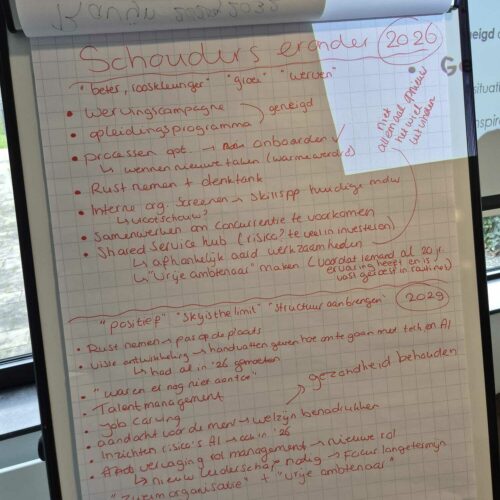 Schouders eronder 2026
"beter, rooskleuriger" "groei" "werven"
• Wervingscampagne
• opleidingsprogramma
geneigd
• processen opt. → onboarden
↳ wennen nieuwe taken (warme overdr)
• Rust nemen + denktank
• Interne org. screenen → skillspp huidige mdw
↳ vlootschouw?
• Samenwerken om concurrentie te voorkomen
• Shared Service hub (risico? te veel in investeren)
↳ afhankelijk aard werkzaamheden
↳ "Vrije ambtenaar" maken (voordat iemand al 20 jr. ervaring heeft en is vast geroest in routines)
niet allemaal opnieuw het wiel uitvinden
"positief" "sky is the limit" "structuur aanbrengen" 2029
• Rust nemen → pas op de plaats
• Visie ontwikkeling → handvatten geven hoe om te gaan met tech en AI
↳ had al in '26 gemoeten
• "waren er nog niet aan toe"
• Talent management
• Job carving
gezondheid behouden
• aandacht voor de mens → welzijn benadrukken
• Inzichten risico's AI → ook in '26
• vervaging rol management → nieuwe rol
↳ nieuw leiderschap nodig → focus langetermijn
+ "vrije ambtenaar"
geneigd
Ge
situati
nspire